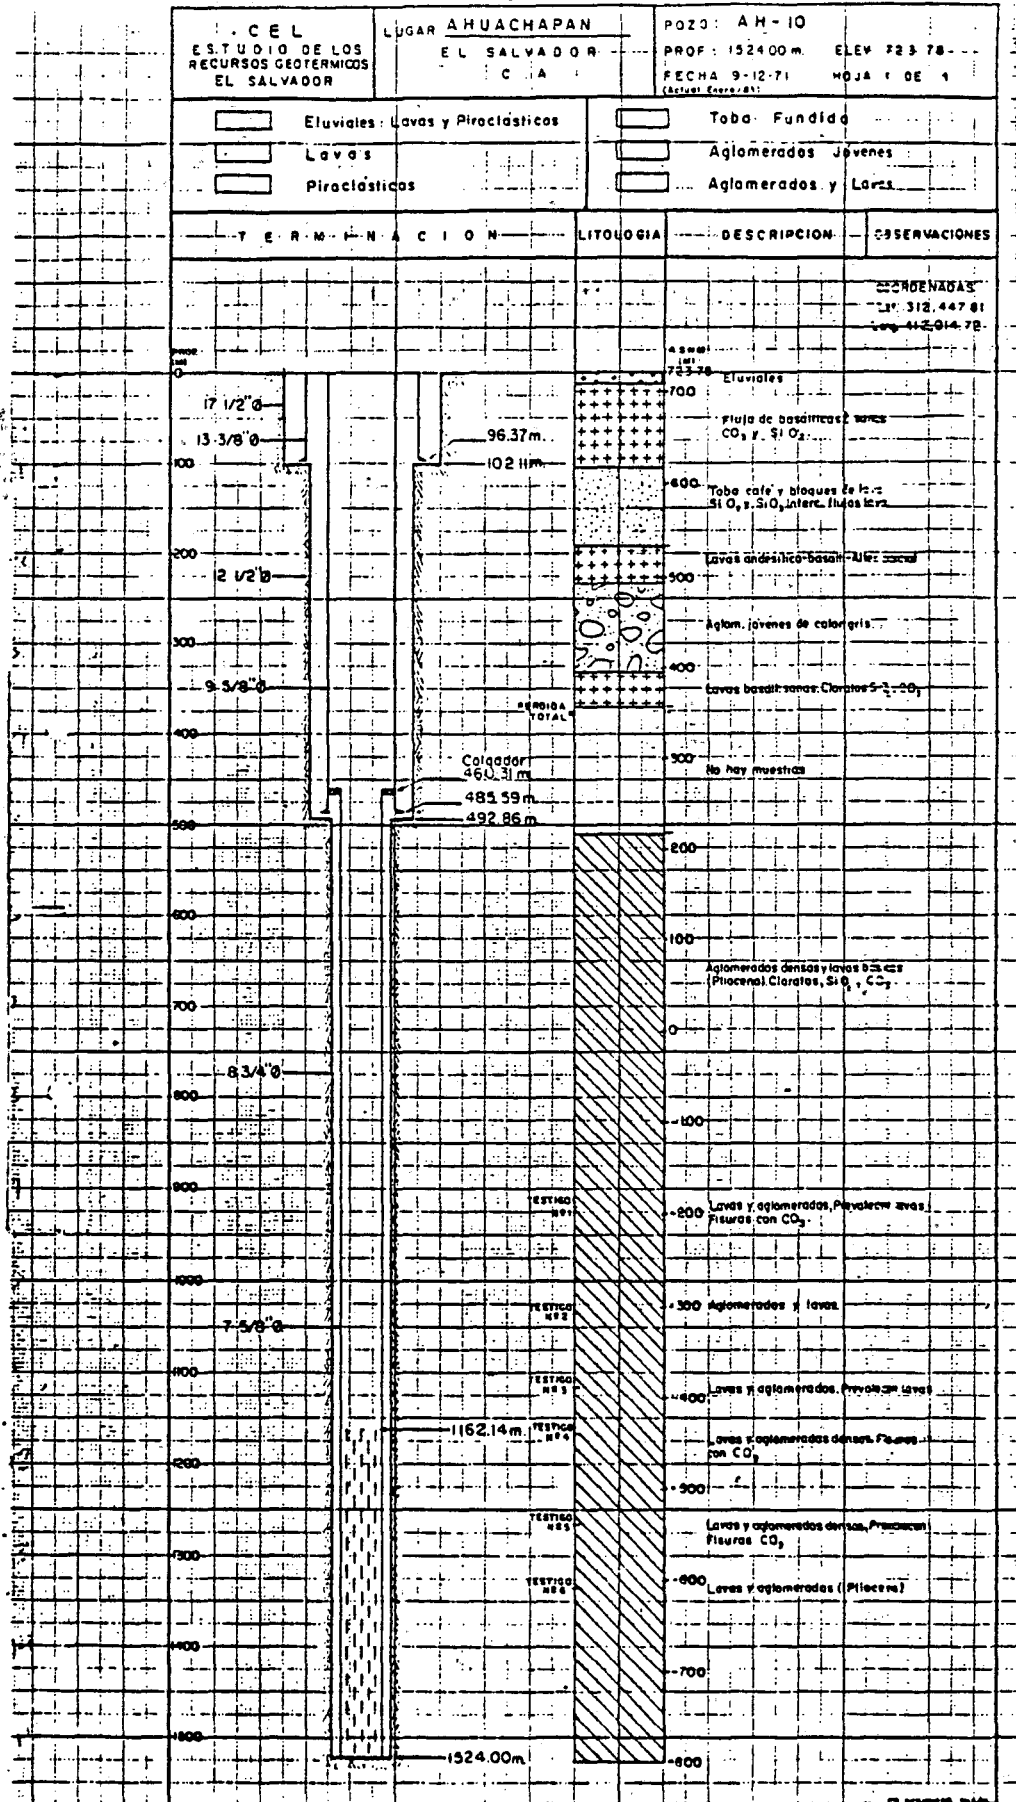 CEL
ESTUDIO DE LOS
RECURSOS GEOTERMICOS
EL SALVADOR
LUGAR AHUACHAPAN
EL SALVADOR
C A
POZO: AH-10
PROF: 1524.00 m. ELEV 723.78
FECHA 9-12-71 HOJA 1 DE 1
Eluviales: Lavas y Piroclásticos
Lavas
Piroclásticos
Toba Fundida
Aglomerados Jovenes
Aglomerados y Lavas
TERMINACION
LITOLOGIA
DESCRIPCION
OBSERVACIONES
COORDENADAS
312,447.81
412,014.72
PROF.
(m)
A.S.N.M.
(m)
723.78
0
100
200
300
400
500
600
700
800
900
1000
1100
1200
1300
1400
1500
17 1/2"Ø
13 3/8"Ø
96.37m.
102.11m.
12 1/2"Ø
9 5/8"Ø
Colgador
460.31 m
485.59m
492.86m
8 3/4"Ø
7 5/8"Ø
1162.14m
1524.00m
PERDIDA
TOTAL
TESTIGO
Nº1
TESTIGO
Nº2
TESTIGO
Nº3
TESTIGO
Nº4
TESTIGO
Nº5
TESTIGO
Nº6
700
600
500
400
300
200
100
0
-100
-200
-300
-400
-500
-600
-700
-800
Eluviales
Flujo de basálticas
CO₃ y SiO₂
Toba café y bloques de
SiO₂ y SiO₂
Lavas andesitico-basalt.
Aglom. jovenes de color gris.
Lavas basált. sanas. Cloratos
No hay muestras
Aglomerados densos y lavas
(Plioceno). Cloratos, SiO₂, CO₃
Lavas y aglomerados, Prevalecen lavas
Fisuras con CO₃
Aglomerados y lavas
Lavas y aglomerados. Prevalecen lavas
Lavas y aglomerados densos. Fisuras
con CO₃
Lavas y aglomerados densos, Prevalecen
Fisuras CO₃
Lavas y aglomerados (Plioceno)